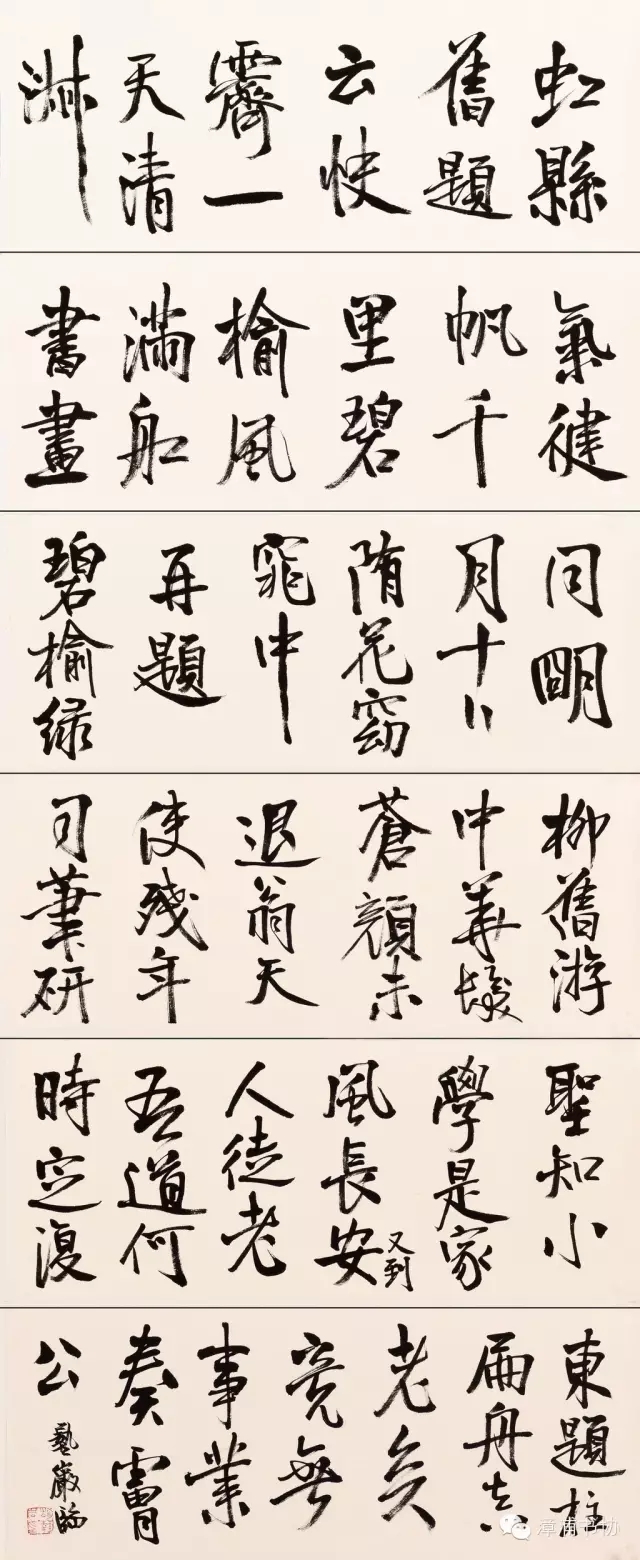 虹縣
舊題
云快
霽一
天清
淑
氣健
帆千
里碧
榆風
滿船
書畫
同明
月十日
隋花窈
窕中
再題
碧榆綠
柳舊游
中華髮
蒼顏未
退翁天
使殘年
司筆研
聖知小
學是家
風長安又到
人徒老
吾道何
時定復
東題柱
扁舟真
老矣
竟無
事業
奏膚
公
藝巖臨
漳浦书协